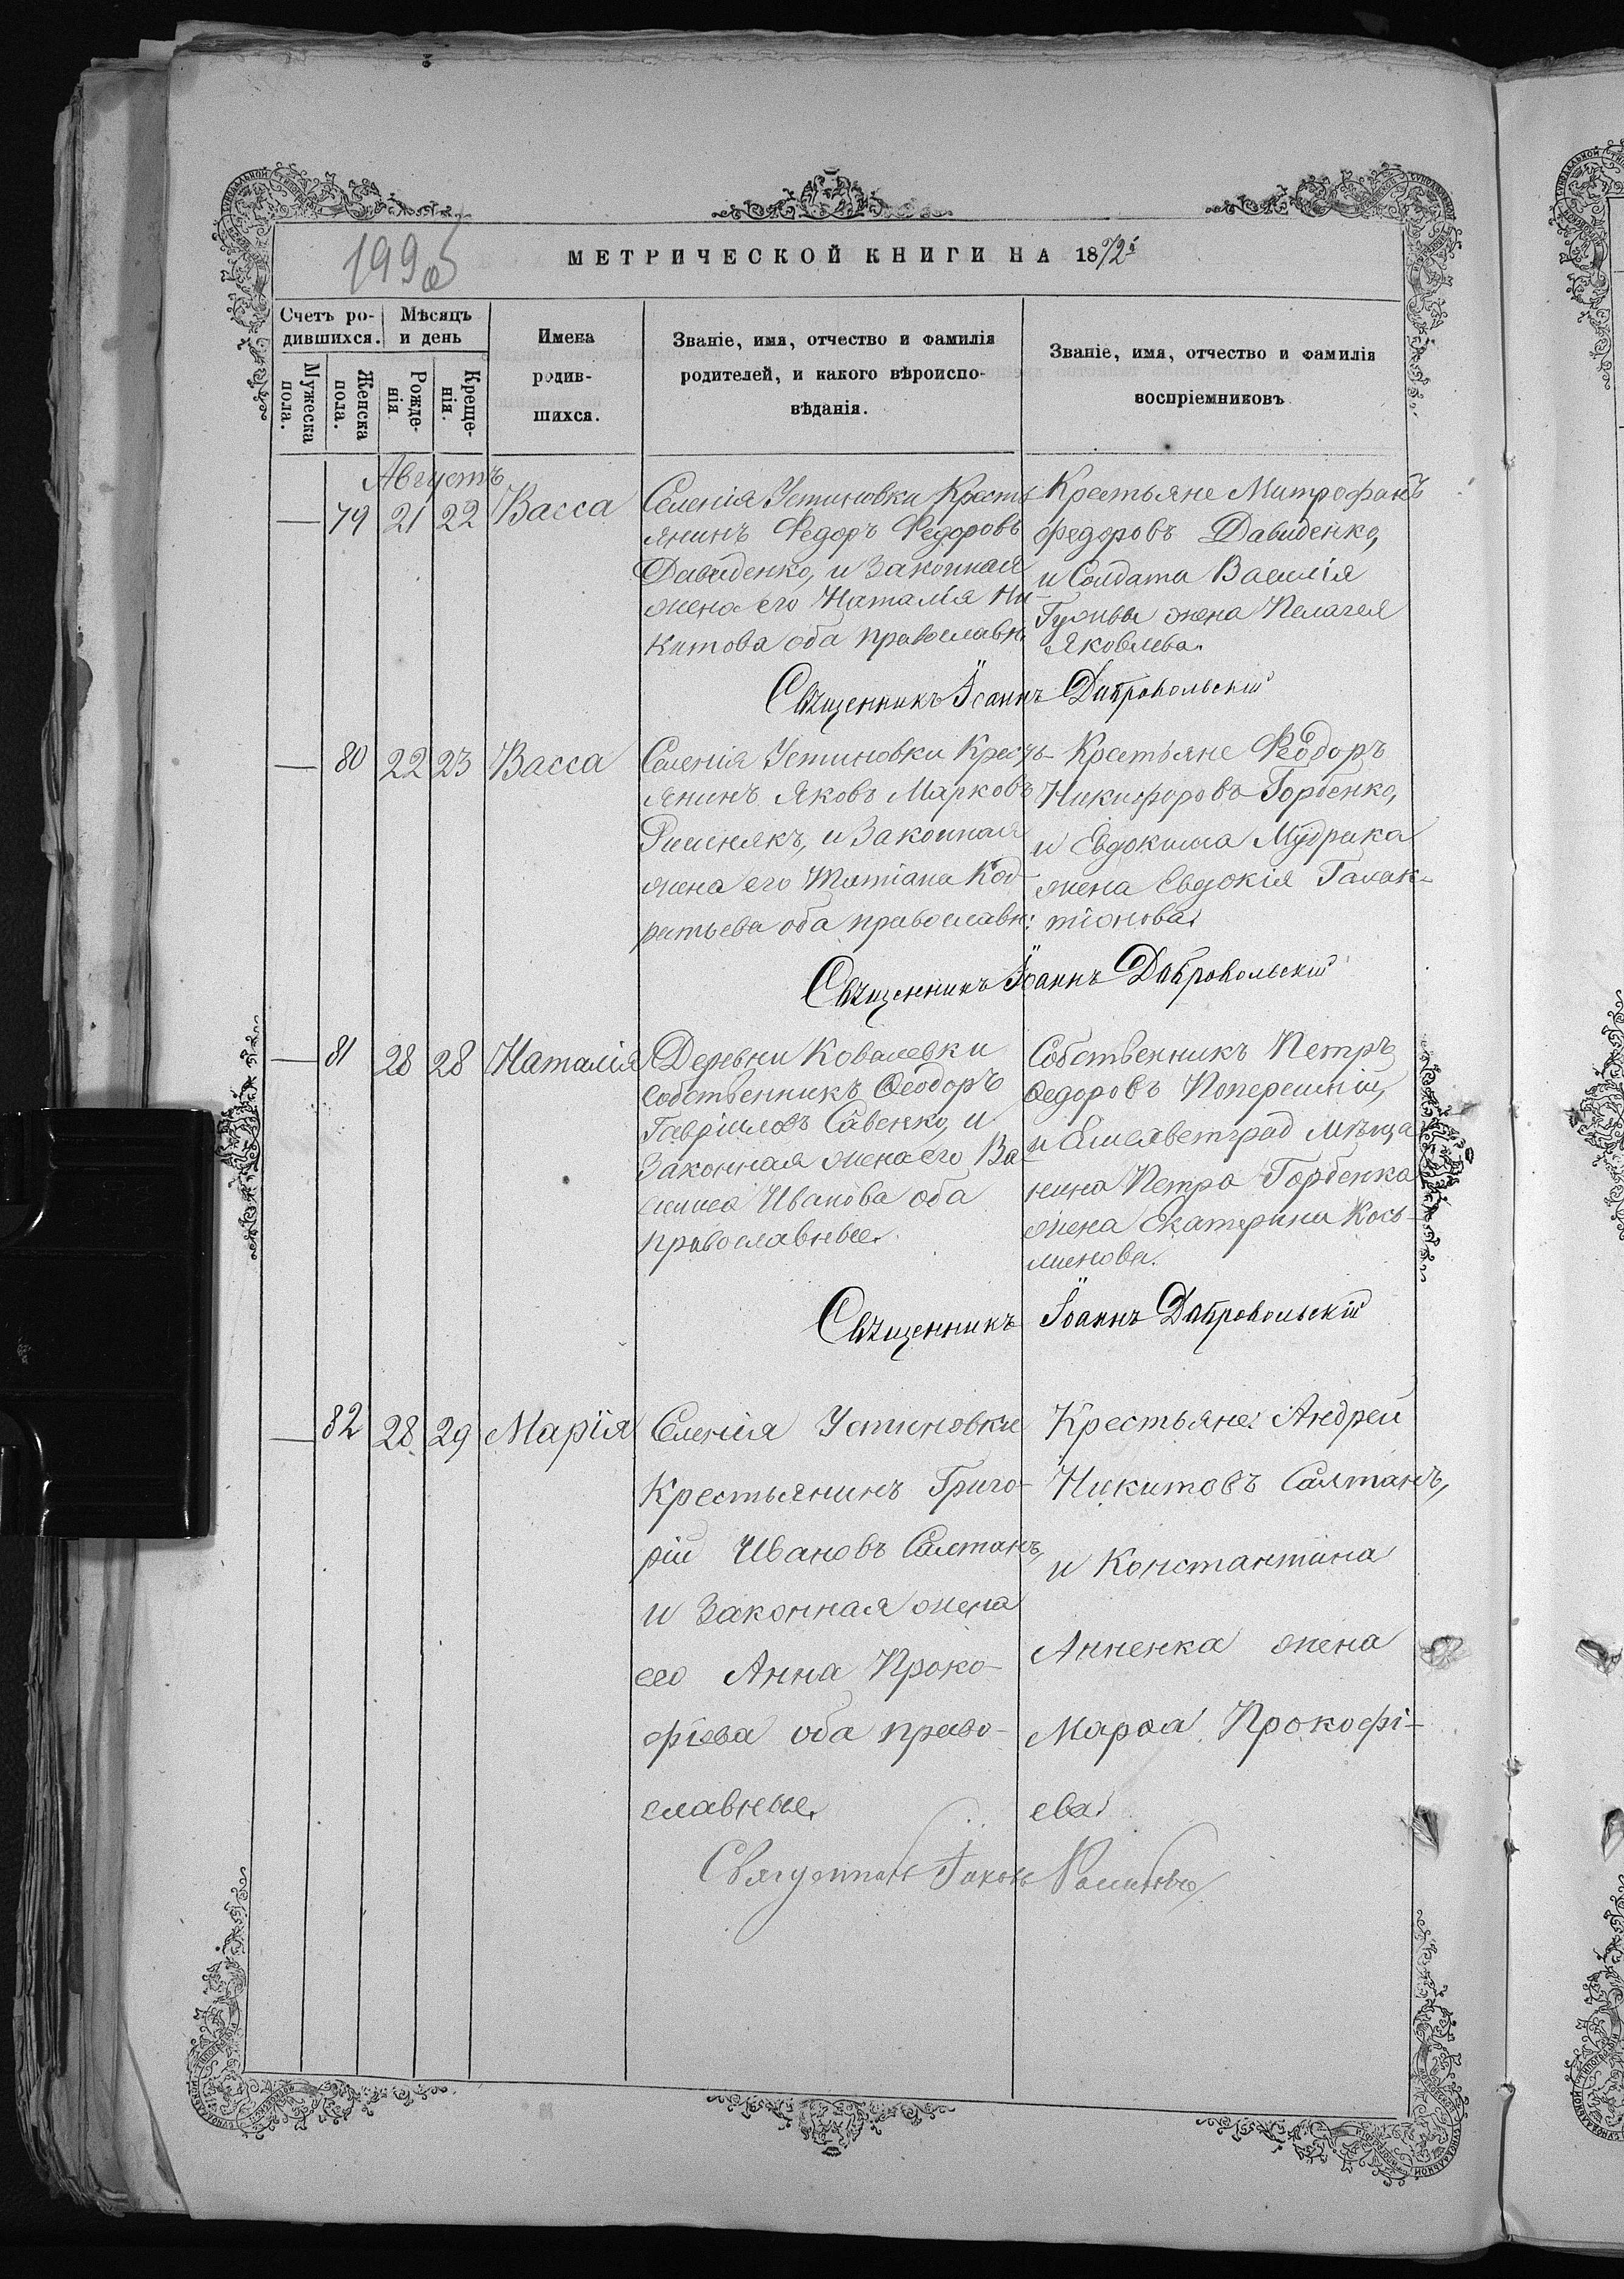 199об
МЕТРИЧЕСКОЙ КНИГИ НА 1872й
Счетъ ро-
дившихся.
Мѣсяцъ
и день
Мужеска
пола.
Женска
пола.
Рожде-
нія.
Креще-
нія.
Имена
родив-
шихся.
Званіе, имя, отчество и фамилія
родителей, и какого вѣроиспо-
вѣданія.
Званіе, имя, отчество и фамилія
воспріемниковъ
Августъ
— 79 21 22 Васса
Селенія Устиновки Кресть
янинъ Федоръ Федоровъ
Давиденко, и Законная
жена его Наталія Ни-
китова оба православн.
Крестьяне Митрофанъ
федоровъ Давиденко,
и Солдата Василія
жена Пелагея
Яковлева.
Священникъ Іоаннъ Домбровольскій
— 80 22 23 Васса
Селенія Устиновки Кресть-
янинъ Яковъ Марковъ
и Законная
жена его Татіана Код-
ратьева оба православн:
Крестьяне Ѳеодоръ
Никифоровъ Горбенко,
и Евдокима Мудрика
жена Евдокія Галак-
тіонова.
Священникъ Іоаннъ Домбровольскій
— 81 28 28 Наталія
Деревни Ковалевки
собственникъ Ѳеодоръ
Гавріиловъ Савенко, и
Законная жена его Ва
силиса Иванова оба
православные.
Собственникъ Петръ
Ѳедоровъ Поперешній,
и Елисаветград мѣща
нина Петра Горбенка
жена Екатерина Козь-
минова.
Священникъ Іоаннъ Домбровольскій
— 82 28 29 Марія
Селенія Устиновки
Крестьянинъ Григо-
рій Ивановъ Салтанъ,
и Законная жена
его Анна Проко-
фіева оба право-
славные.
Крестьяне: Андрей
Никитовъ Салтанъ,
и Константина
Анненка жена
Марѳа Прокофі-
ева.
Священникъ Іаковъ